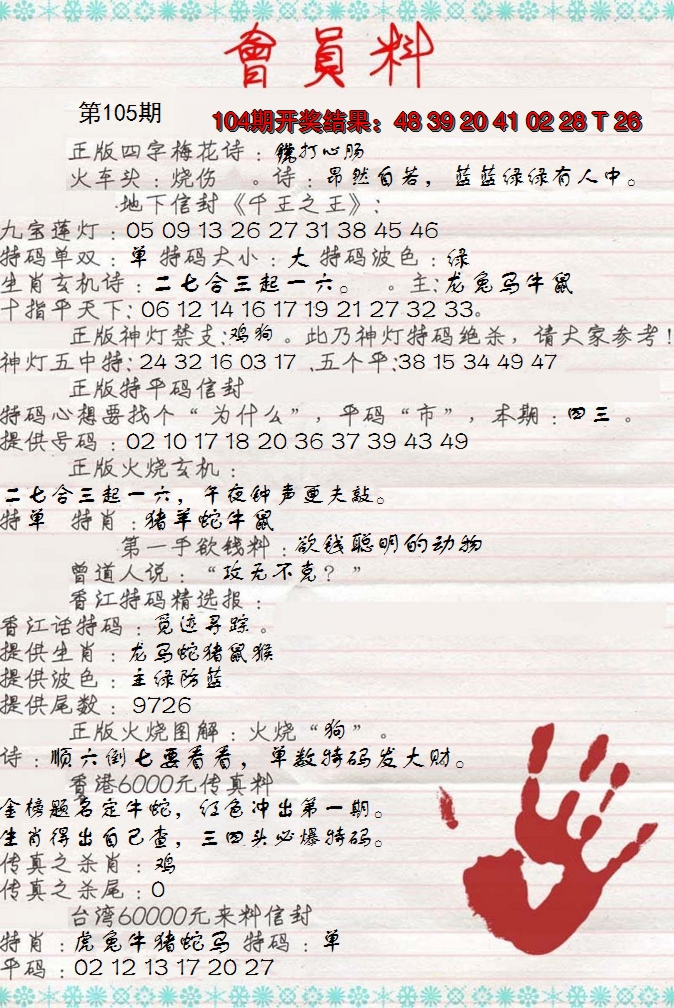 會員料
第105期
104期开奖结果：48 39 20 41 02 28 T 26
正版四字梅花诗：镜打心肠
火车头：烧伤 。诗：昂然自若，蓝蓝绿绿有人中。
地下信封《千王之王》：
九宝莲灯：05 09 13 26 27 31 38 45 46
特码单双：单 特码大小：大 特码波色：绿
生肖玄机诗：二七合三起一六。 。主:龙兔马牛鼠
十指平天下:06 12 14 16 17 19 21 27 32 33。
正版神灯禁支:鸡狗。此乃神灯特码绝杀，请大家参考!
神灯五中特:24 32 16 03 17 、五个平:38 15 34 49 47
正版特平码信封
特码心想要找个“为什么”，平码“市”，本期：四三。
提供号码：02 10 17 18 20 36 37 39 43 49
正版火烧玄机：
二七合三起一六，午夜钟声更夫敲。
特单 特肖：猪羊蛇牛鼠
第一手欲钱料：欲钱聪明的动物
曾道人说：“攻无不克？”
香江特码精选报：
香江话特码：觅迹寻踪。
提供生肖：龙马蛇猪鼠猴
提供波色：主绿防蓝
提供尾数：9726
正版火烧图解：火烧“狗”。
诗：顺六倒七要看看，单数特码发大财。
香港6000元传真料
金榜题名定牛蛇，红色冲出第一期。
生肖得出自己查，三四头必爆特码。
传真之杀肖：鸡
传真之杀尾：0
台湾60000元来料信封
特肖：虎兔牛猪蛇马 特码：单
平码：02 12 13 17 20 27